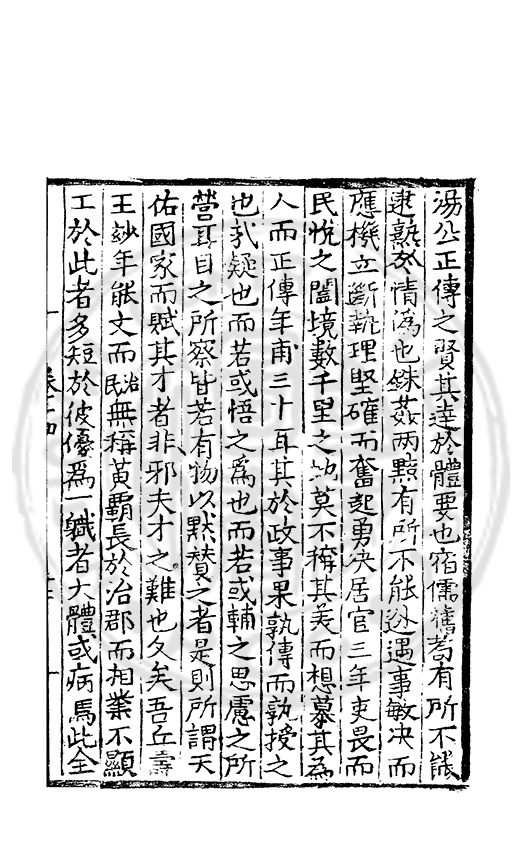 湯公正傳之賢其達於體要也宿儒舊耆有所不能
逮熟於情偽也銖姦兩黠有所不能逃遇事敏决而
應機立斷執理堅確而奮起勇决居官三年吏畏而
民悅之闔境數千里之地莫不稱其美而想慕其為
人而正傳年甫三十耳其於政事果孰傳而孰授之
也我疑也而若或悟之爲也而若或輔之思慮之所
營耳目之所察皆若有物以默賛之者是則所謂天
佑國家而賦其才者非邪夫才之難也久矣吾丘壽
王玅年能文而治民無稱黄霸長於治郡而相業不顯
工於此者多短於彼優爲一職者大體或病焉此全
卷十四